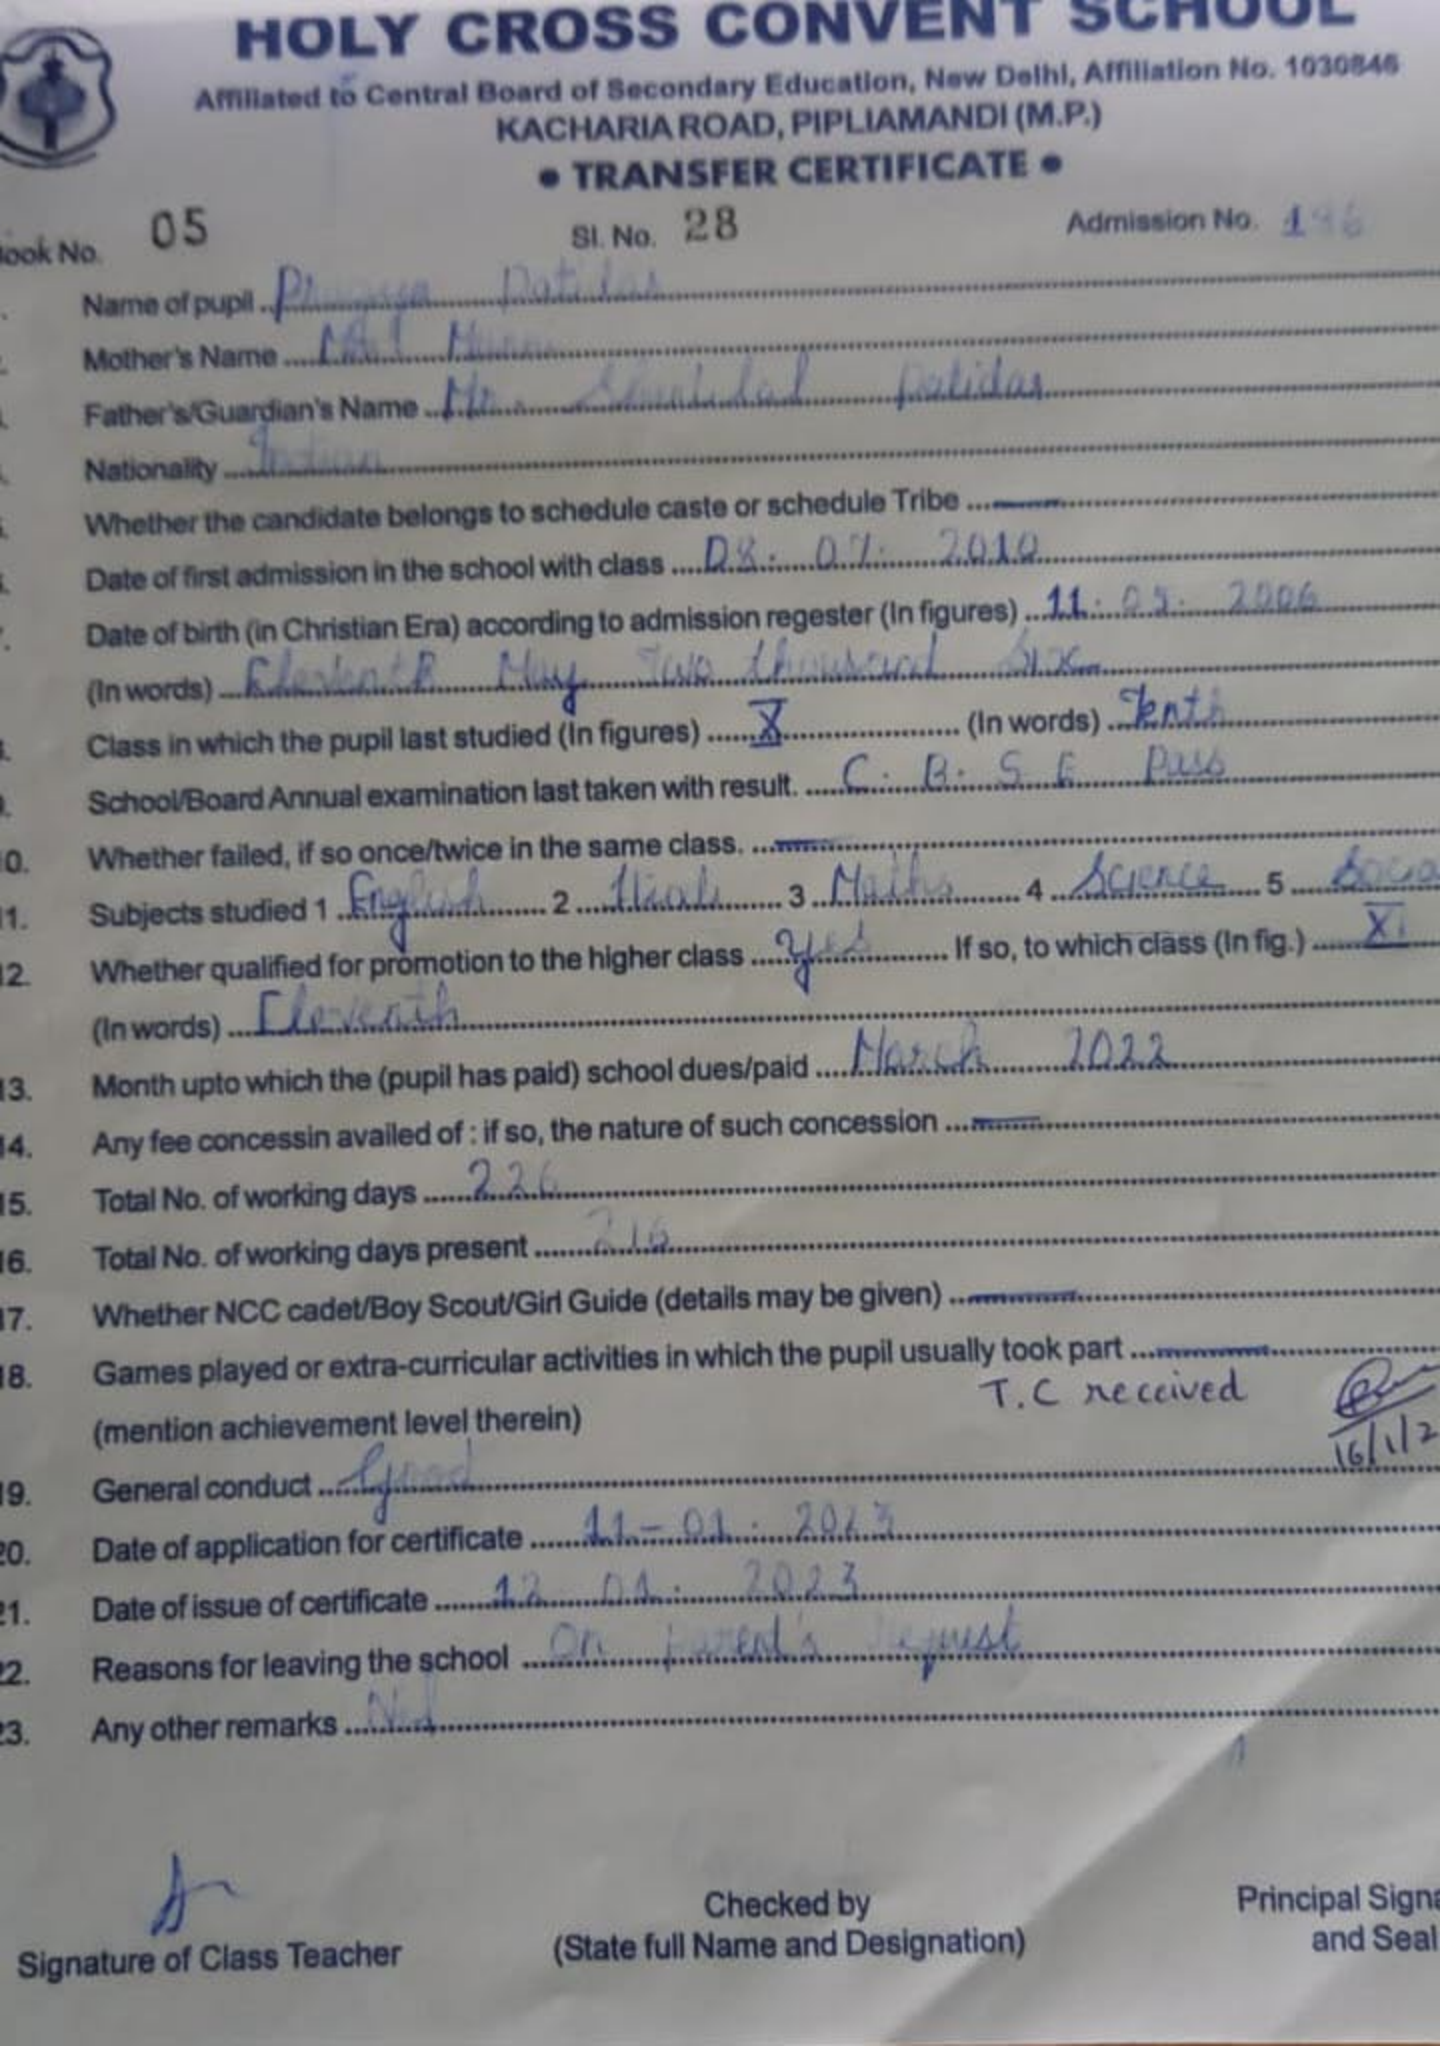 HOLY CROSS CONVENT SCHOOL
Affiliated to Central Board of Secondary Education, New Delhi, Affiliation No. 1030846
KACHARIA ROAD, PIPLIAMANDI (M.P.)
• TRANSFER CERTIFICATE •
ook No. 05 Sl. No. 28 Admission No.
Name of pupil Patidar
Mother's Name
Father's/Guardian's Name Mr. Patidar
Nationality Indian
Whether the candidate belongs to schedule caste or schedule Tribe
Date of first admission in the school with class 08. 07. 2010
Date of birth (in Christian Era) according to admission regester (In figures) 11. 05. 2006
(In words) Eleventh May Two thousand Six
Class in which the pupil last studied (In figures) X (In words) Tenth
School/Board Annual examination last taken with result. C. B. S E Pass
10. Whether failed, if so once/twice in the same class.
11. Subjects studied 1 English 2 3 Maths 4 Science 5 Socia
12. Whether qualified for promotion to the higher class Yes If so, to which class (In fig.) XI
(In words) Eleventh
13. Month upto which the (pupil has paid) school dues/paid March 2022
14. Any fee concessin availed of : if so, the nature of such concession
15. Total No. of working days 226
16. Total No. of working days present 216
17. Whether NCC cadet/Boy Scout/Girl Guide (details may be given)
18. Games played or extra-curricular activities in which the pupil usually took part
T.C received
(mention achievement level therein) 16/1/2
19. General conduct Good
20. Date of application for certificate 11-01. 2023
21. Date of issue of certificate 12 01. 2023
22. Reasons for leaving the school On parent's request
23. Any other remarks Nil
Signature of Class Teacher
Checked by
(State full Name and Designation)
Principal Signa
and Seal